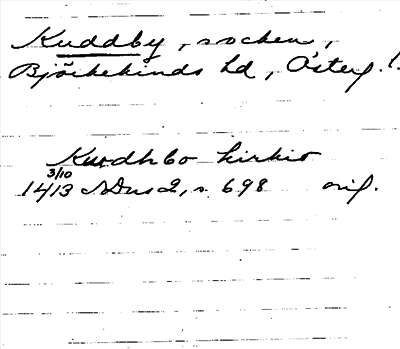 Kuddby, socken,
Björkekinds hd, Österg.l.
Kwdhbo kirkio
3/10
1413 SDns 2, s. 698 orig.